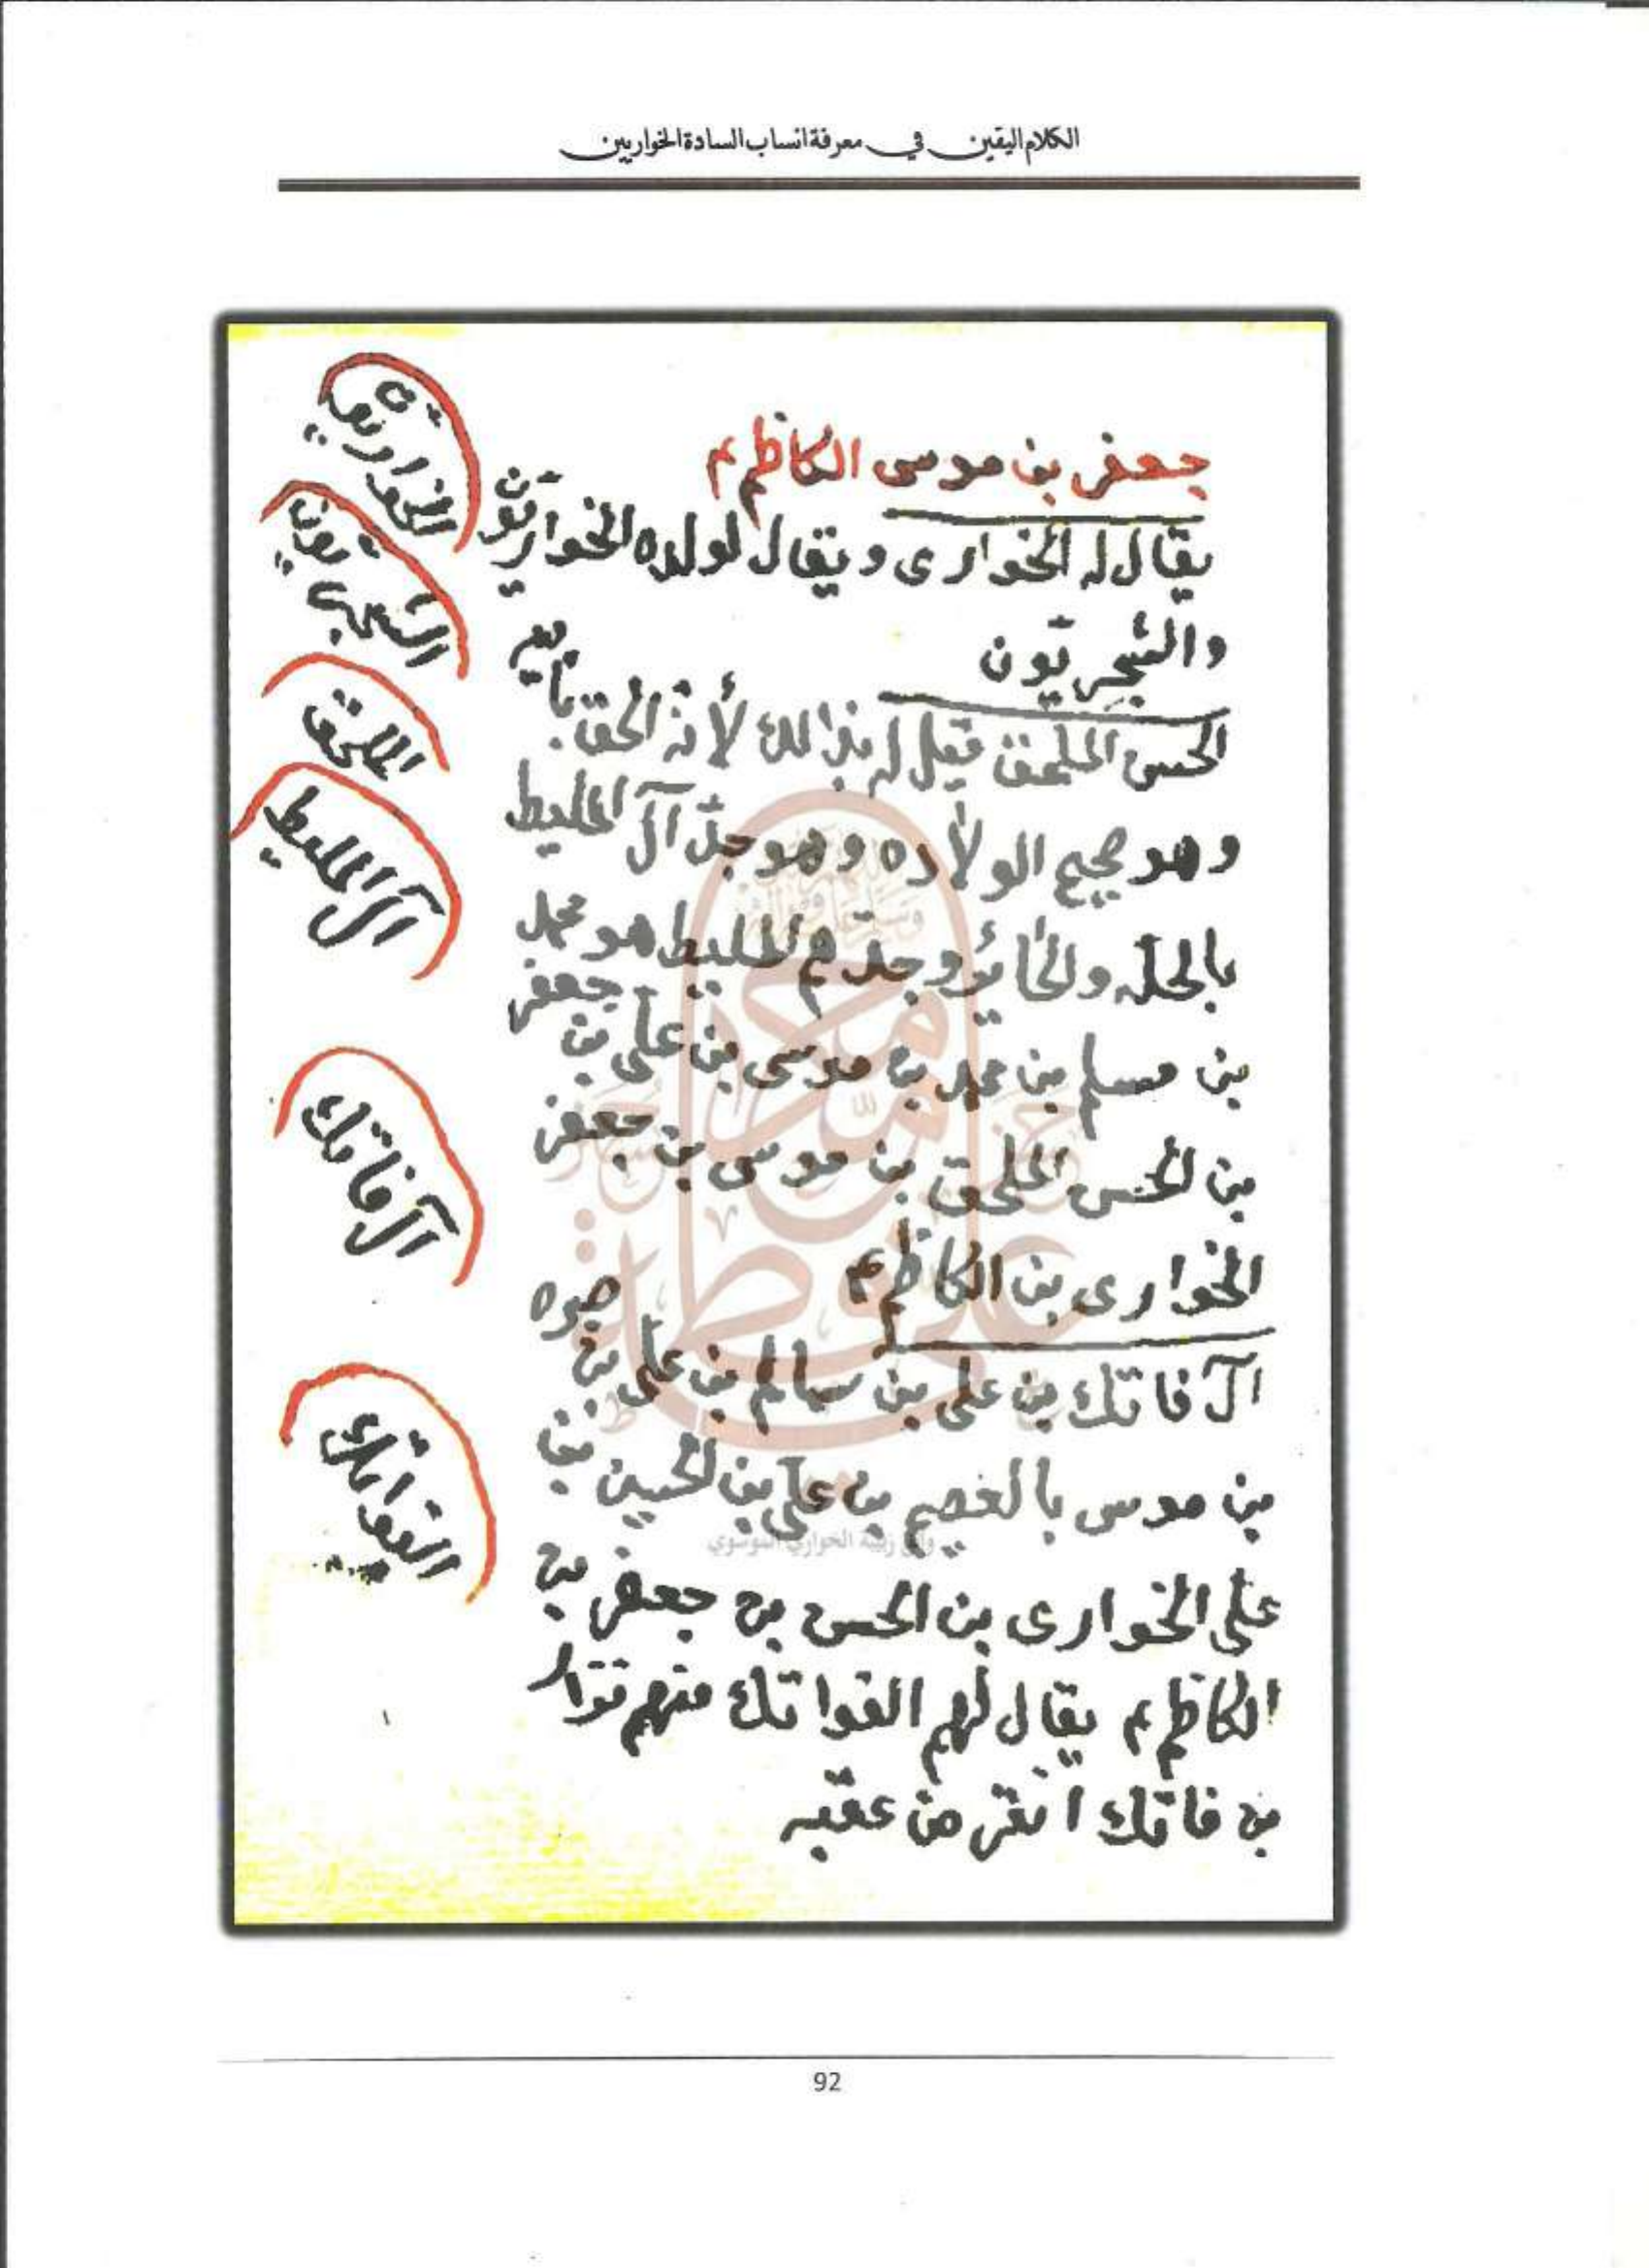 الكلام اليقين في معرفة انساب السادة الخواريين
جعفر بن موسى الكاظم ع
يقال له الخوارى ويقال لولده الخواريّون
والشجريّون
الحسن الملحق قيل له بذالك لأنه الحق بأبيه
وهو صحيح الولاده وهو جدّ آل المليط
بالحله والحائر وجدهم المليط هو محمد
بن مسلم بن محمد بن موسى بن على بن جعفر
بن الحسن الملحق بن موسى بن جعفر
الخوارى بن الكاظم ع
آل فاتك بن على بن سالم بن على بن صبره
بن موسى بن على بن الحسين بن
على الخوارى بن الحسن بن جعفر بن
الكاظم ع يقال لهم الفواتك منهم
بن فاتك انقرض عقبه
الخواريّون
الشجريّون
الملحق
آل المليط
آل فاتك
الفواتك
محمد
علي
92